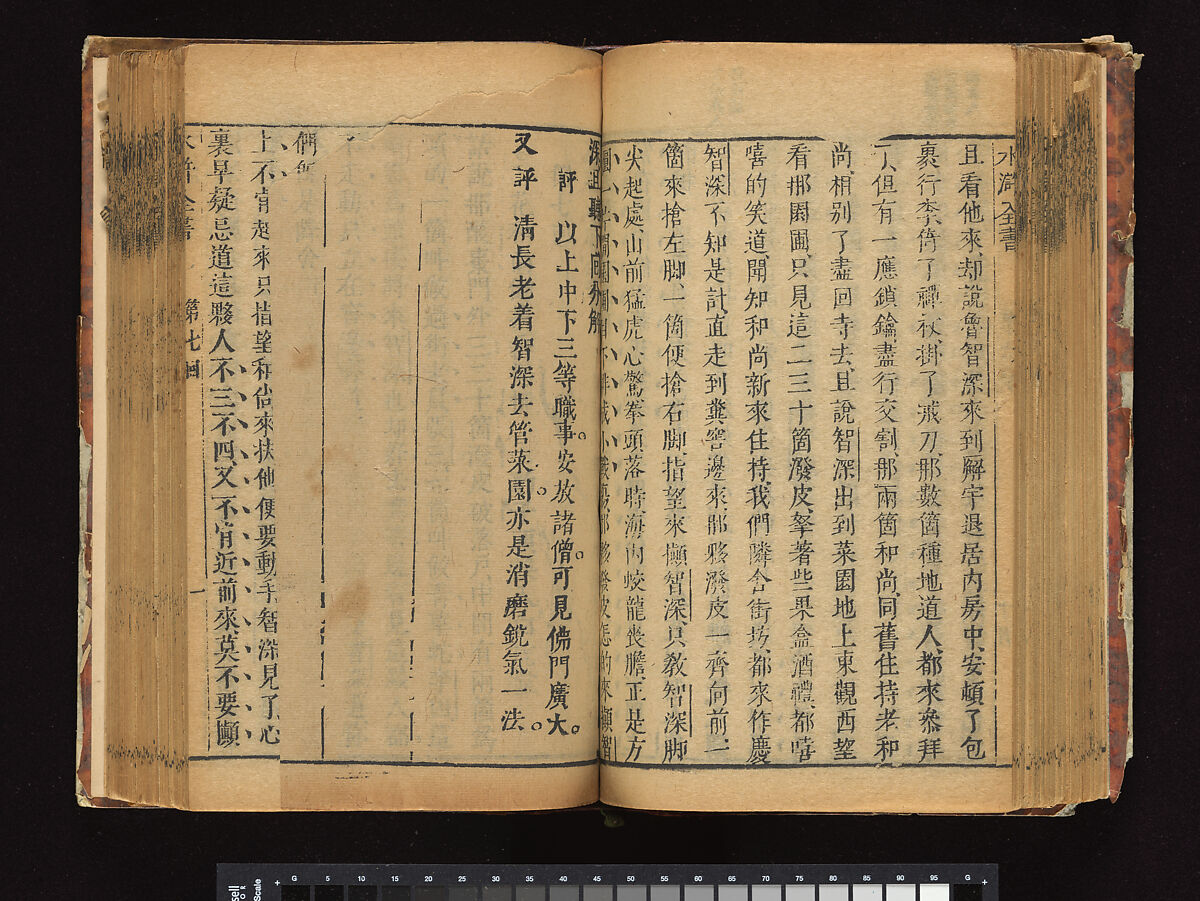 水滸全書
且看他來却說魯智深來到廨宇退居內房中安頓了包
裹行李倚了禪杖掛了戒刀那數箇種地道人都來參拜
了但有一應鎖鑰盡行交割那兩箇和尚同舊住持老和
尚相別了盡回寺去且說智深出到菜園地上東觀西望
看那園圃只見這二三十箇潑皮拏著些果盒酒禮都嘻
嘻的笑道聞知和尚新來住持我們隣舍街坊都來作慶
智深不知是計直走到糞窖邊來那夥潑皮一齊向前一
箇來搶左脚一箇便搶右脚指望來攧智深只教智深脚
尖起處山前猛虎心驚拳頭落時海內蛟龍喪膽正是方
深且聽下回分解
評 以上中下三等職事安放諸僧可見佛門廣大
又評 清長老着智深去管菜園亦是消磨銳氣一法
們
上不肯起來只指望和尚來扶他便要動手智深見了心
裏早疑忌道這夥人不三不四又不肯近前來莫不要攧
水滸全書 第七回 一
G 5 10 15 20 30 35 40 45 50 55 60 65 70 75 80 85 90 95 G